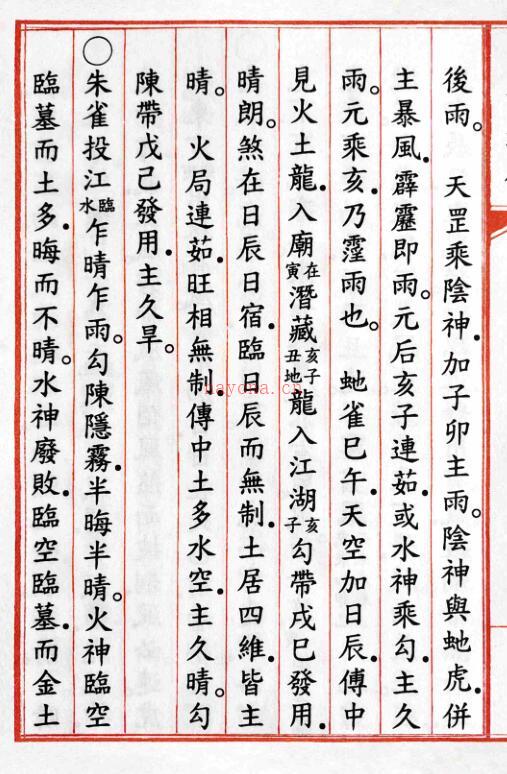 後雨。　天罡乘陰神．加子卯主雨。陰神與虵虎．併
主暴風．霹靂即雨。元后亥子連茹．或水神乘勾．主久
雨。元乘亥．乃霪雨也。　虵雀巳午．天空加日辰．傳中
見火土．龍入廟在寅潛藏亥子丑地龍入江湖亥子勾帶戌巳發用．
晴朗。煞在日辰日宿．臨日辰而無制．土居四維．皆主
晴。　火局連茹．旺相無制．傳中土多水空．主久晴。勾
陳帶戊己發用．主久旱。
○朱雀投江臨水乍晴乍雨。勾陳隱霧．半晦半晴。火神臨空
臨墓而土多．晦而不晴。水神廢敗．臨空臨墓．而金土